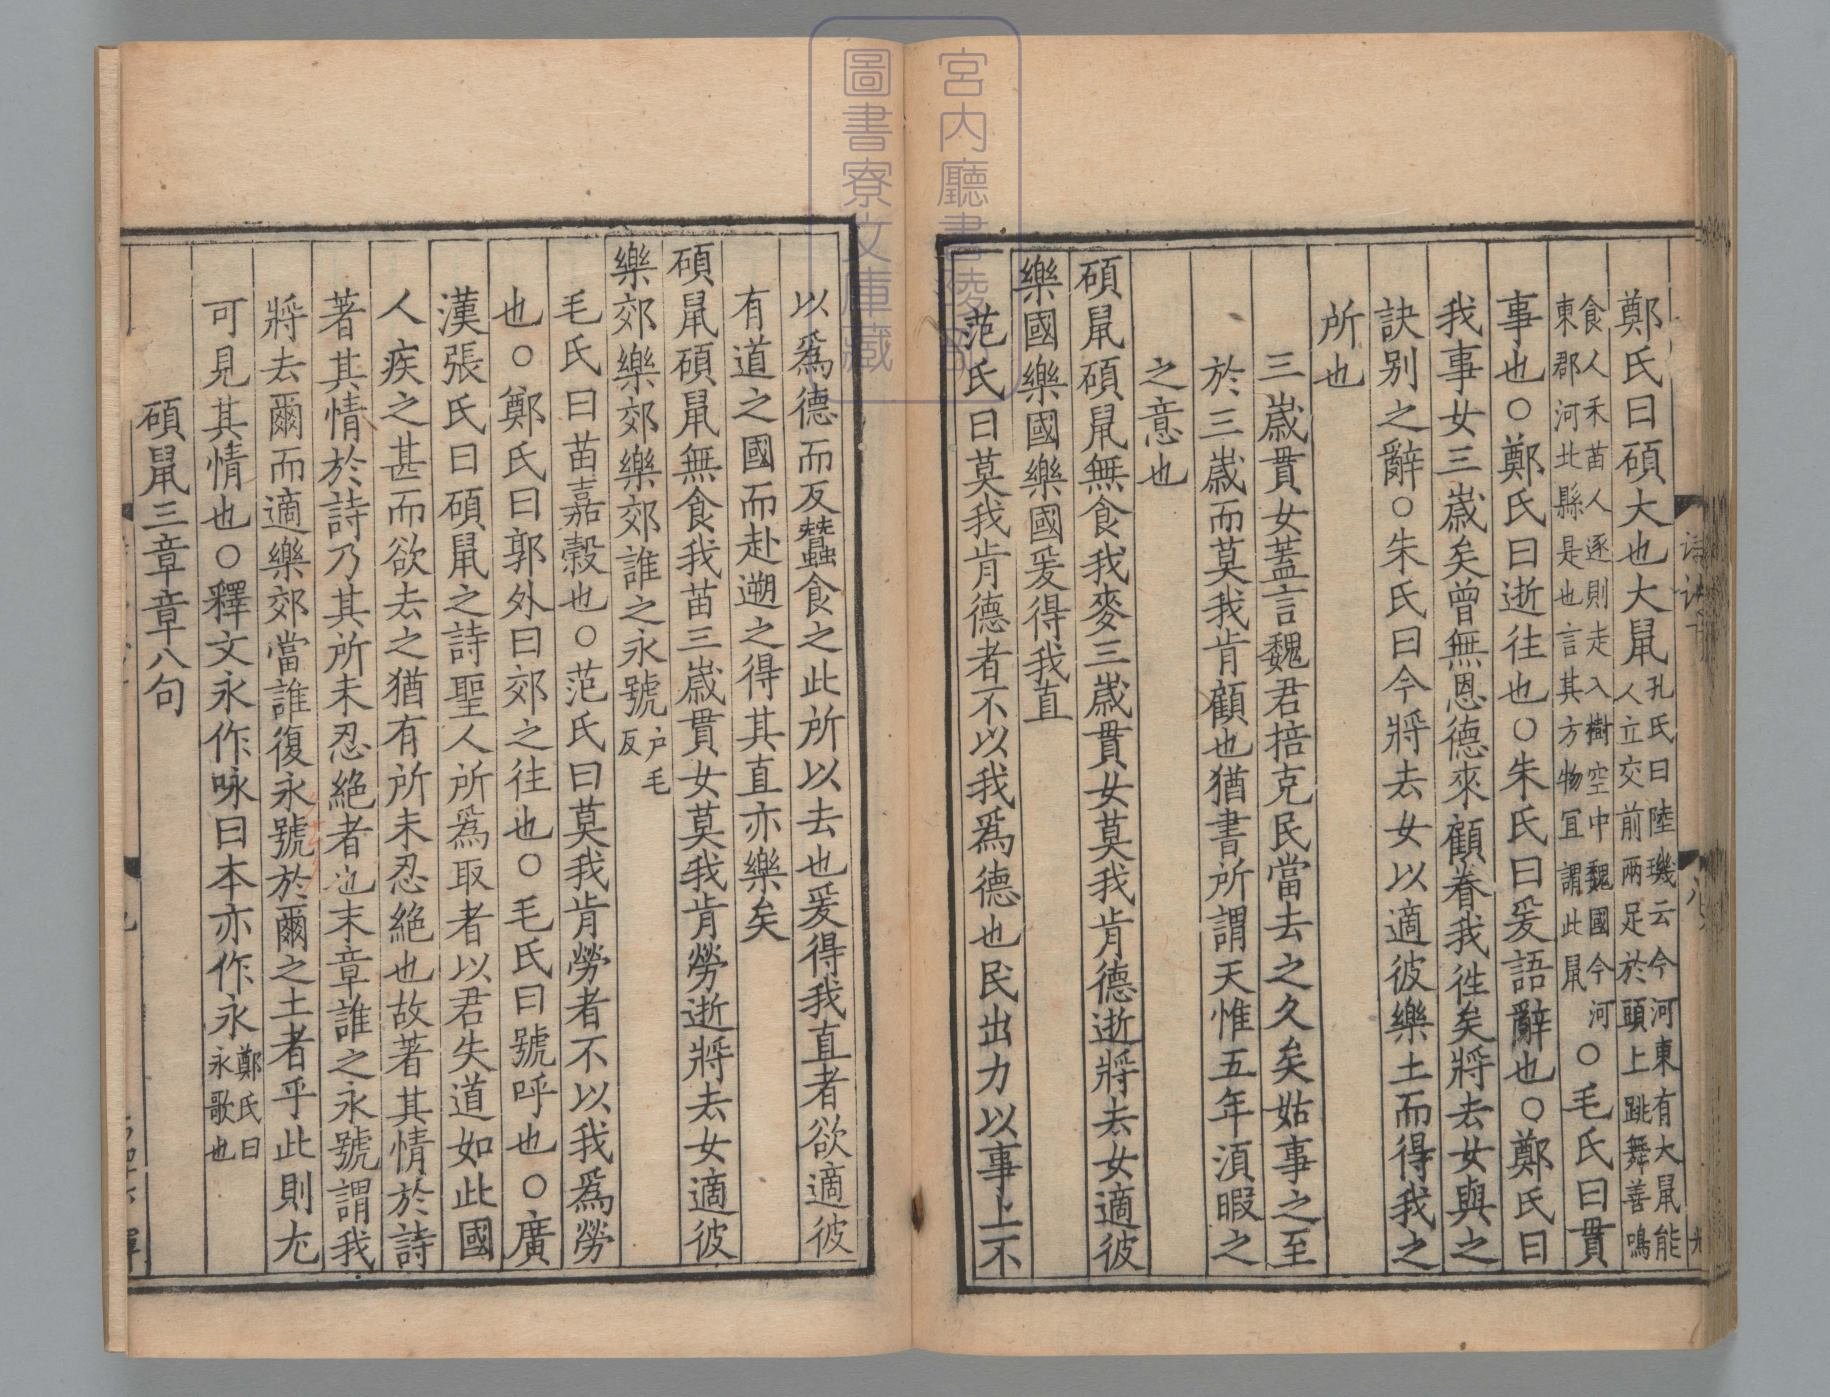 鄭氏曰碩大也大鼠孔氏曰陸璣云今河東有大鼠能人立交前兩足於頭上跳舞善鳴
食人禾苗人逐則走入樹空中魏國今河東郡河北縣是也言其方物冝謂此鼠○毛氏曰貫
事也○鄭氏曰逝往也○朱氏曰爰語辭也○鄭氏曰
我事女三歲矣曾無恩德來顧眷我徃矣將去女與之
訣别之辭○朱氏曰今將去女以適彼樂土而得我之
所也
三歲貫女蓋言魏君掊克民當去之久矣姑事之至
於三歲而莫我肯顧也猶書所謂天惟五年湏暇之
之意也
碩鼠碩鼠無食我麥三歲貫女莫我肯德逝將去女適彼
樂國樂國樂國爰得我直
范氏曰莫我肯德者不以我爲德也民出力以事上不
以爲德而反蠶食之此所以去也爰得我直者欲適彼
有道之國而赴遡之得其直亦樂矣
碩鼠碩鼠無食我苗三歲貫女莫我肯勞逝將去女適彼
樂郊樂郊樂郊誰之永號户毛反
毛氏曰苗嘉穀也○范氏曰莫我肯勞者不以我爲勞
也○鄭氏曰郭外曰郊之往也○毛氏曰號呼也○廣
漢張氏曰碩鼠之詩聖人所爲取者以君失道如此國
人疾之甚而欲去之猶有所未忍絶也故著其情於詩
著其情於詩乃其所未忍絶者也末章誰之永號謂我
將去爾而適樂郊當誰復永號於爾之土者乎此則尤
可見其情也○釋文永作咏曰本亦作永鄭氏曰永歌也
碩鼠三章章八句
宮内廳書陵部
圖書寮文庫藏